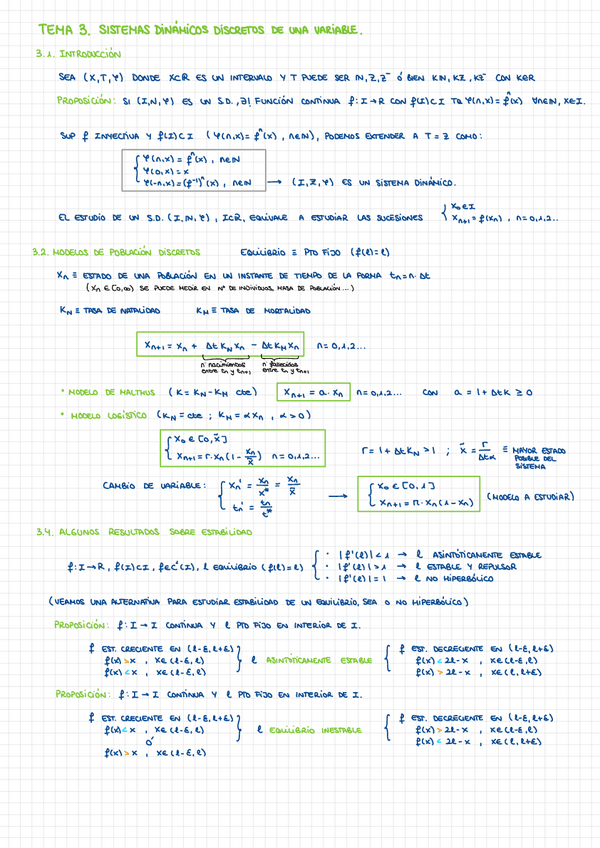 TEMA 3. SISTEMAS DINÁMICOS DISCRETOS DE UNA VARIABLE.
3.1. INTRODUCCIÓN
SEA (X,T,φ) DONDE X⊂ℝ ES UN INTERVALO Y T PUEDE SER ℕ, ℤ, ℤ⁻ Ó BIEN Kℕ, Kℤ, Kℤ⁻ CON K∈ℝ
PROPOSICIÓN: SI (I,ℕ,φ) ES UN S.D., ∃! FUNCIÓN CONTINUA f: I→ℝ CON f(I)⊂I TQ φ(n,x) = fⁿ(x) ∀n∈ℕ, x∈I.
SUP f INYECTIVA Y f(I)⊂I (φ(n,x) = fⁿ(x), n∈ℕ), PODEMOS EXTENDER A T = ℤ COMO:
φ(n,x) = fⁿ(x), n∈ℕ
φ(0,x) = x
φ(-n,x) = (f⁻¹)ⁿ(x), n∈ℕ → (I,ℤ,φ) ES UN SISTEMA DINÁMICO.
EL ESTUDIO DE UN S.D. (I,ℕ,φ), I⊂ℝ, EQUIVALE A ESTUDIAR LAS SUCESIONES { x₀∈I
xₙ₊₁ = f(xₙ), n=0,1,2...
3.2. MODELOS DE POBLACIÓN DISCRETOS EQUILIBRIO ≡ PTO FIJO (f(l)=l)
Xₙ ≡ ESTADO DE UNA POBLACIÓN EN UN INSTANTE DE TIEMPO DE LA FORMA tₙ = n·Δt
(Xₙ ∈ [0,∞) SE PUEDE MEDIR EN Nº DE INDIVIDUOS, MASA DE POBLACIÓN...)
K_N ≡ TASA DE NATALIDAD K_M ≡ TASA DE MORTALIDAD
Xₙ₊₁ = Xₙ + Δt K_N Xₙ − Δt K_M Xₙ n=0,1,2...
nº nacimientos entre tₙ y tₙ₊₁ nº fallecidos entre tₙ y tₙ₊₁
* MODELO DE MALTHUS (K = K_N − K_M cte) Xₙ₊₁ = a·Xₙ n=0,1,2... CON a = 1 + ΔtK ≥ 0
* MODELO LOGÍSTICO (K_N = cte ; K_M = αXₙ , α>0)
X₀ ∈ [0, x̃]
Xₙ₊₁ = r·Xₙ(1 − Xₙ/x̃) n=0,1,2... r = 1 + ΔtK_N > 1 ; x̃ = r/Δtα ≡ MAYOR ESTADO POSIBLE DEL SISTEMA
CAMBIO DE VARIABLE: { Xₙ' = Xₙ/X* = Xₙ/x̃
tₙ' = tₙ/t* → { X₀ ∈ [0,1]
Xₙ₊₁ = r·Xₙ(1−Xₙ) (MODELO A ESTUDIAR)
3.4. ALGUNOS RESULTADOS SOBRE ESTABILIDAD
f: I→ℝ, f(I)⊂I, f∈C¹(I), l EQUILIBRIO (f(l)=l) { · |f'(l)|<1 → l ASINTÓTICAMENTE ESTABLE
· |f'(l)|>1 → l ESTABLE Y REPULSOR
· |f'(l)|=1 → l NO HIPERBÓLICO
(VEAMOS UNA ALTERNATIVA PARA ESTUDIAR ESTABILIDAD DE UN EQUILIBRIO, SEA O NO HIPERBÓLICO)
PROPOSICIÓN: f: I→I CONTINUA Y l PTO FIJO EN INTERIOR DE I.
f EST. CRECIENTE EN (l-ε, l+ε) f EST. DECRECIENTE EN (l-ε, l+ε)
f(x)>x , x∈(l-ε, l) } l ASINTÓTICAMENTE ESTABLE { f(x)<2l-x , x∈(l-ε, l)
f(x)<x , x∈(l-ε, l) f(x)>2l-x , x∈(l, l+ε)
PROPOSICIÓN: f: I→I CONTINUA Y l PTO FIJO EN INTERIOR DE I.
f EST. CRECIENTE EN (l-ε, l+ε) f EST. DECRECIENTE EN (l-ε, l+ε)
f(x)<x , x∈(l-ε, l) } l EQUILIBRIO INESTABLE { f(x)>2l-x , x∈(l-ε, l)
Ó f(x)<2l-x , x∈(l, l+ε)
f(x)>x , x∈(l-ε, l)